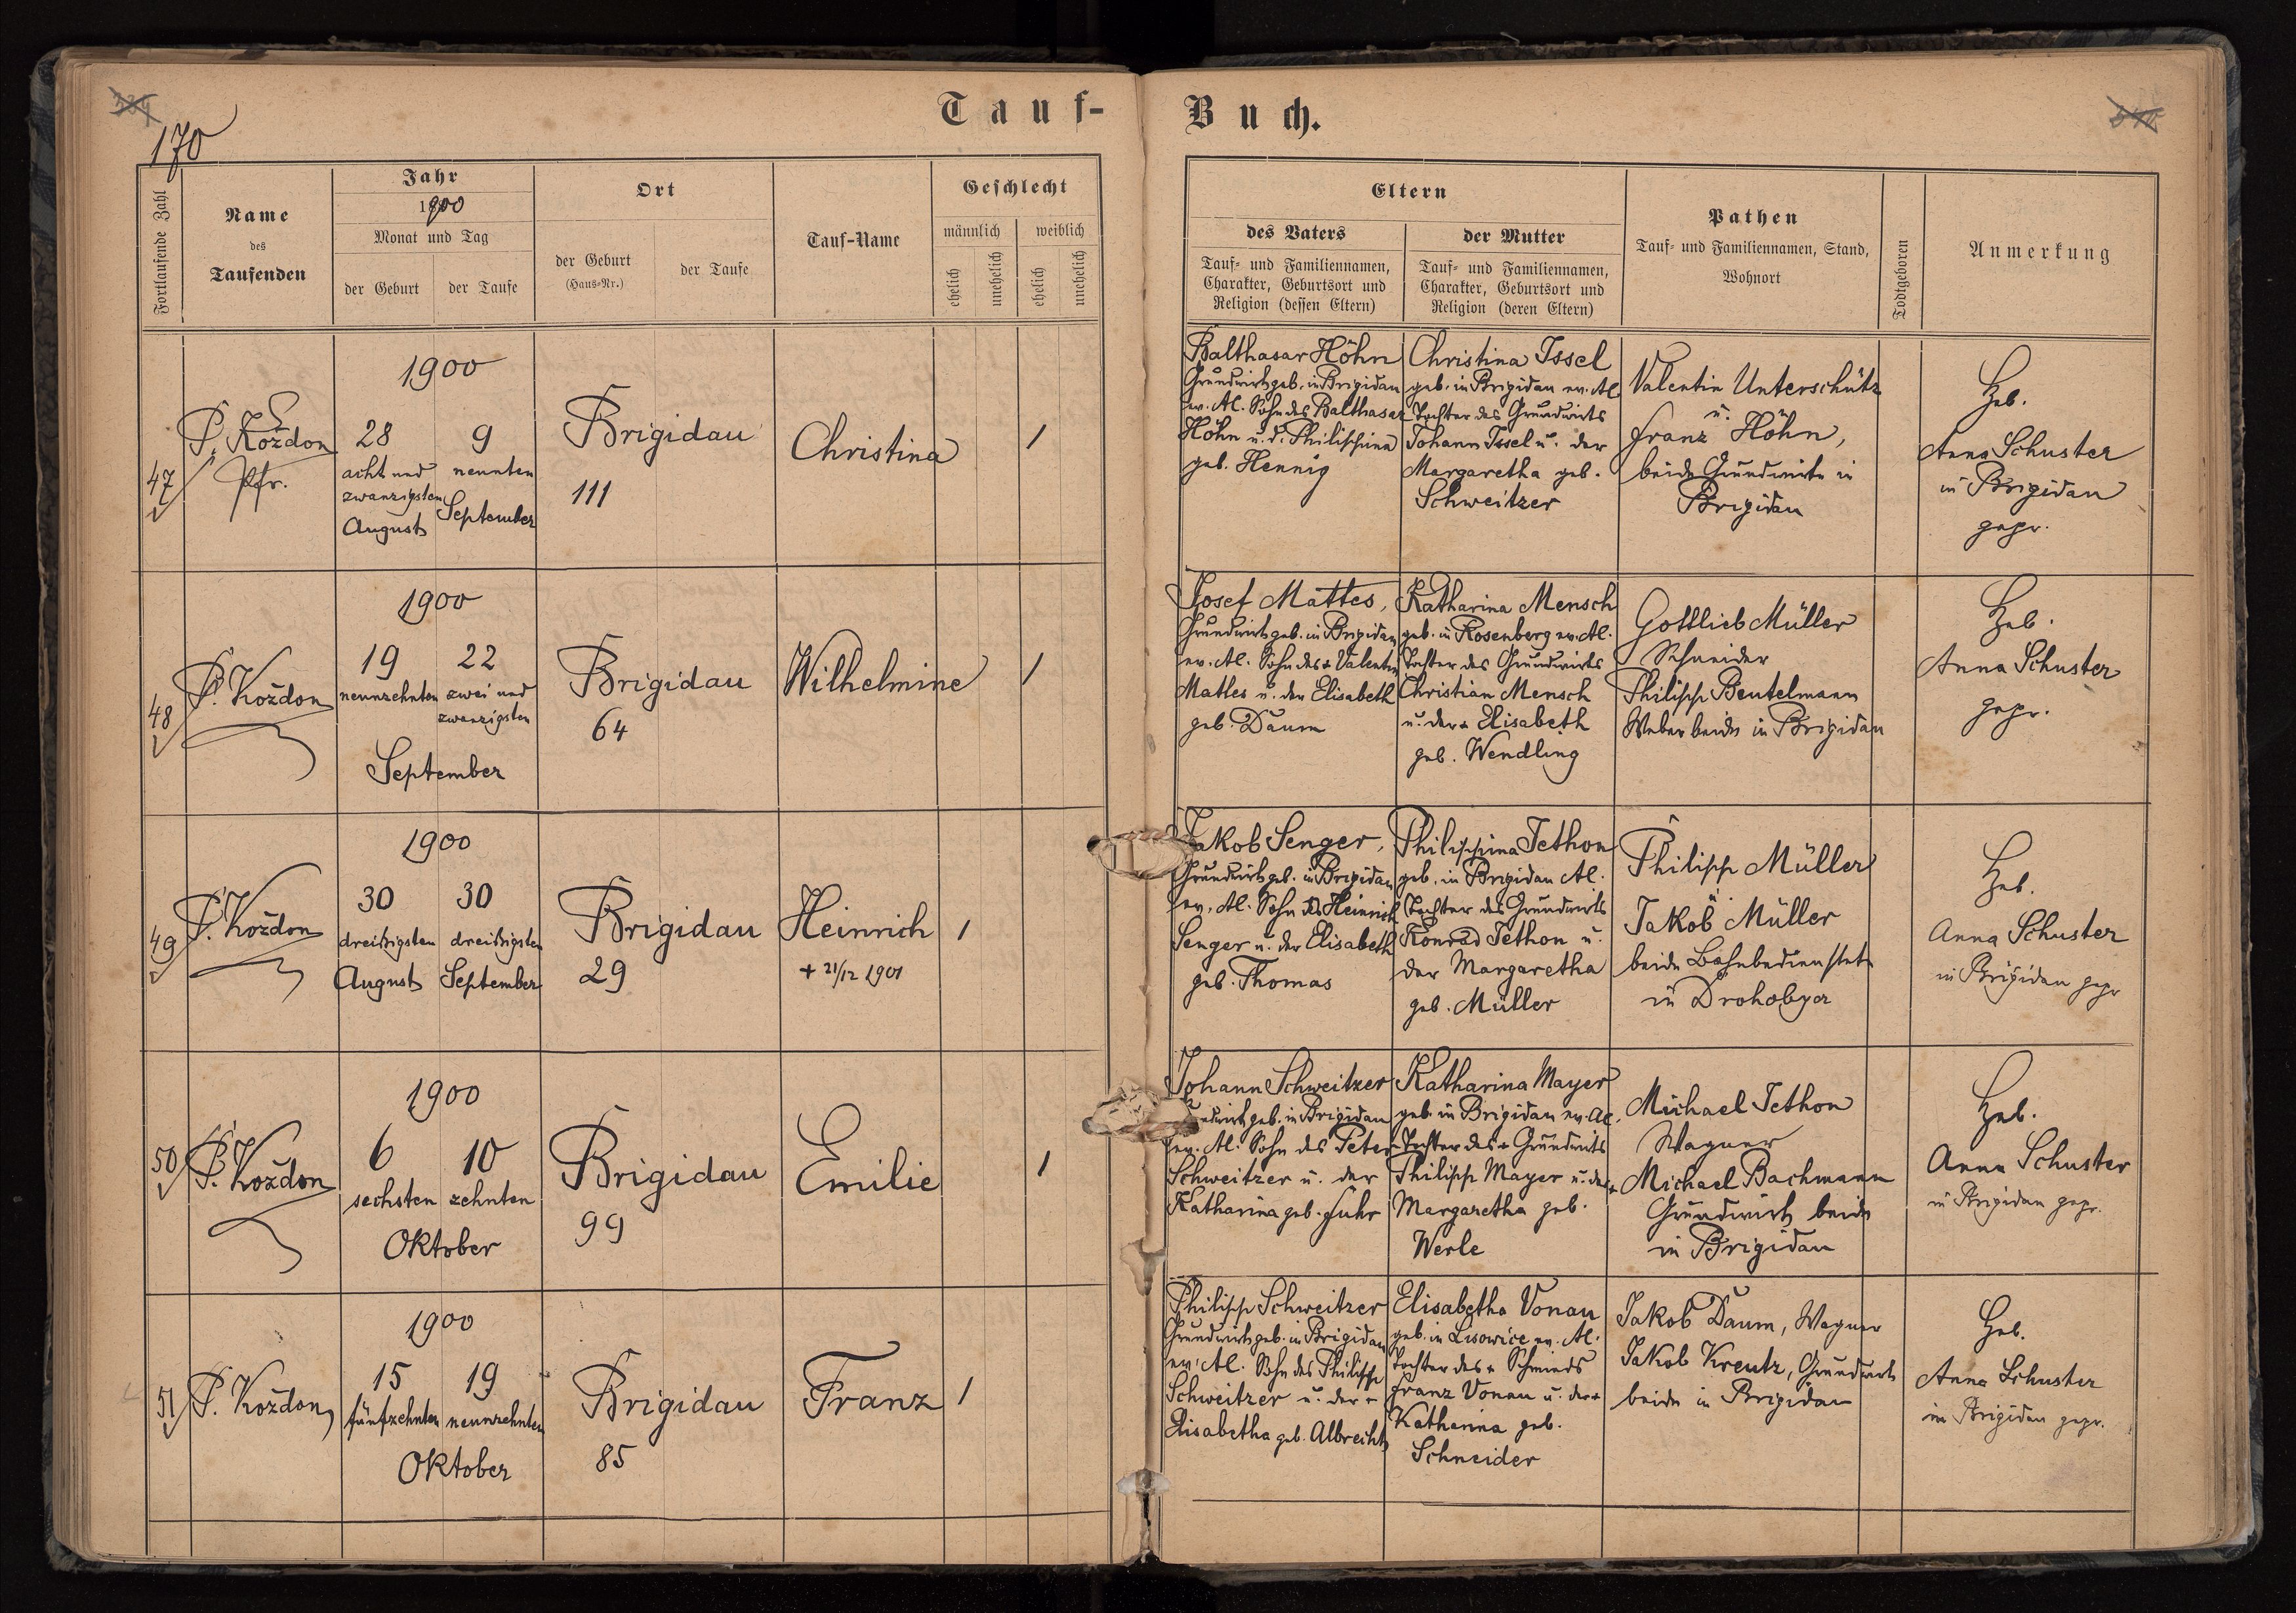 170
Tauf-Buch.
Fortlaufende Zahl
Name
des
Taufenden
Jahr
1900
Monat und Tag
der Geburt
der Taufe
Ort
der Geburt
(Haus-Nr.)
der Taufe
Tauf-Name
Geschlecht
männlich
weiblich
ehelich
unehelich
ehelich
unehelich
Eltern
des Vaters
Tauf- und Familiennamen,
Charakter, Geburtsort und
Religion (dessen Eltern)
der Mutter
Tauf- und Familiennamen,
Charakter, Geburtsort und
Religion (deren Eltern)
Pathen
Tauf- und Familiennamen, Stand,
Wohnort
Todtgeboren
Anmerkung
47
P. Koždon
Pfr.
1900
28
acht und
zwanzigsten
August
9
neunten
September
Brigidau
111
Christina
1
Balthasar Höhn
Grundwirt geb. in Brigidau
ev. Al. Sohn des Balthasar
Höhn u. d. Philippina
geb. Hennig
Christina Issel
geb. in Brigidau ev. Al.
Tochter des Grundwirts
Johann Issel u. der
Margaretha geb.
Schweitzer
Valentin Unterschütz
u.
Franz Höhn,
beide Grundwirte in
Brigidau
Heb.
Anna Schuster
in Brigidau
gepr.
48
P. Koždon
1900
19
neunzehnten
22
zwei und
zwanzigsten
September
Brigidau
64
Wilhelmine
1
Josef Mattes,
Grundwirt geb. in Brigidau
ev. Al. Sohn des + Valentin
Mattes u. der Elisabeth
geb. Daum
Katharina Mensch
geb. in Rosenberg ev. Al.
Tochter des Grundwirts
Christian Mensch
u. der + Elisabeth
geb. Wendling
Gottlieb Müller
Schneider
Philipp Beutelmann
Weber beide in Brigidau
Heb.
Anna Schuster
gepr.
49
P. Koždon
1900
30
dreißigsten
August
30
dreißigsten
September
Brigidau
29
Heinrich
+ 21/12 1901
1
Jakob Senger,
Grundwirt geb. in Brigidau
ev. Al. Sohn des Heinrich
Senger u. der Elisabeth
geb. Thomas
Philippina Tethon
geb. in Brigidau Al.
Tochter des Grundwirts
Konrad Tethon u.
der Margaretha
geb. Müller
Philipp Müller
u
Jakob Müller
beide Bahnbedienstete
in Drohobycz
Heb.
Anna Schuster
in Brigidau gepr
50
P. Koždon
1900
6
sechsten
10
zehnten
Oktober
Brigidau
99
Emilie
1
Johann Schweitzer
Grundwirt geb. in Brigidau
ev. Al. Sohn des Peter
Schweitzer u. der
Katharina geb. Fuhr
Katharina Mayer
geb. in Brigidau ev. Al.
Tochter des + Grundwirts
Philipp Mayer u. der +
Margaretha geb.
Werle
Michael Tethon
Wagner
Michael Bachmann
Grundwirt beide
in Brigidau
Heb.
Anna Schuster
in Brigidau gepr.
51
P. Koždon,
1900
15
fünfzehnten
19
neunzehnten
Oktober
Brigidau
85
Franz
1
Philipp Schweitzer
Grundwirt geb. in Brigidau
ev. Al. Sohn des Philipp
Schweitzer u. der +
Elisabetha geb. Albrecht
Elisabetha Vonau
geb. in Lisowice ev. Al.
Tochter des + Schmieds
Franz Vonau u. der +
Katharina geb.
Schneider
Jakob Daum, Wagner
Jakob Kreutz, Grundwirt
beide in Brigidau
Heb.
Anna Schuster
in Brigidau gepr.